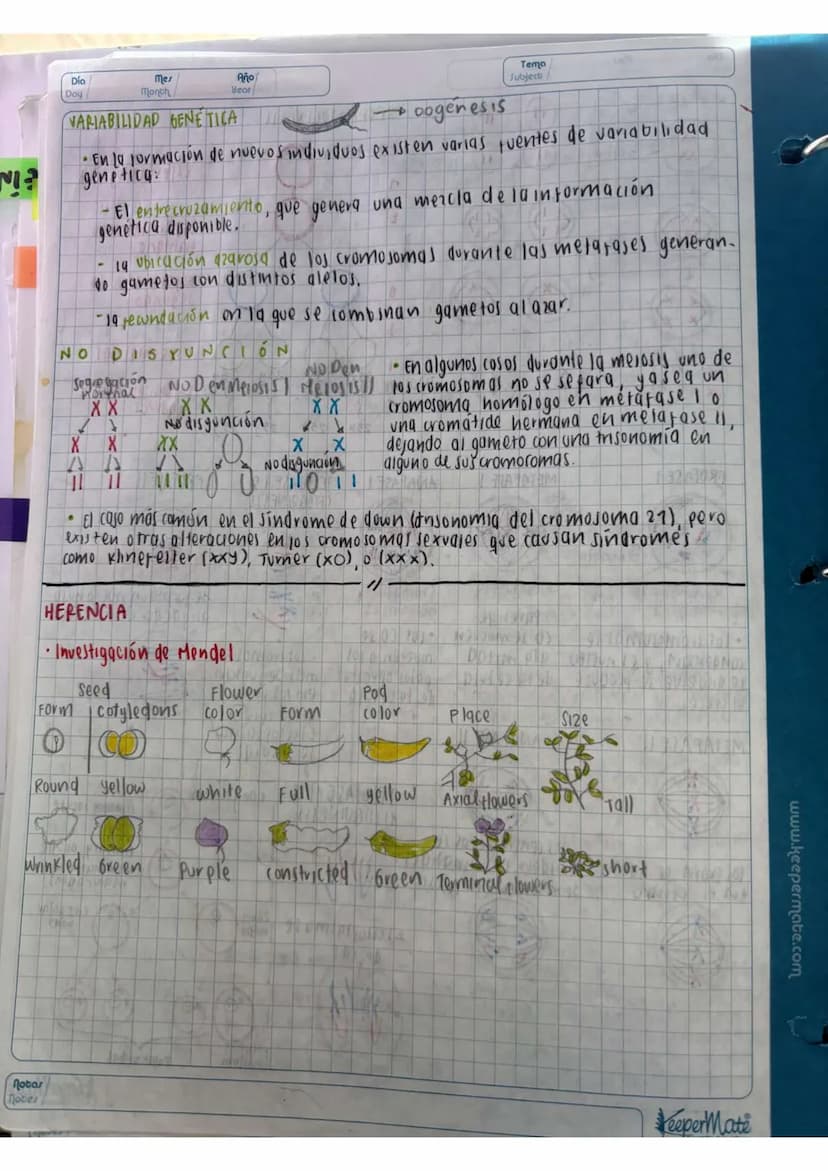 Día
Day
Mes
Month
Año
Year
Tema
Subject
VARIABILIDAD GENÉTICA
→ oogénesis
• En la formación de nuevos individuos existen varias fuentes de variabilidad
genética:
- El entrecruzamiento, que genera una mezcla de la información
genética disponible.
- la ubicación azarosa de los cromosomas durante las metafases generan-
do gametos con distintos alelos.
- la fecundación en la que se combinan gametos al azar.
NO DISYUNCIÓN
Segregación
normal
NO D en Meiosis I
NO D en
Meiosis II
X X
X X
X X
No disyunción
X X
X X
X X
No disyunción
• En algunos casos durante la meiosis uno de
los cromosomas no se separa, ya sea un
cromosoma homólogo en metafase I o
una cromátide hermana en metafase II,
dejando al gameto con una trisonomía en
alguno de sus cromosomas.
• El caso más común en el síndrome de down (trisonomía del cromosoma 21), pero
existen otras alteraciones en los cromosomas sexuales que causan síndromes
como Klinefelter (xxy), Turner (XO), o (XXX).
HERENCIA
• Investigación de Mendel
Seed
Flower
Pod
Form
cotyledons
color
Form
color
Place
Size
Round
yellow
white
Full
yellow
Axial flowers
Tall
Wrinkled
Green
Purple
constricted
Green
Terminal flowers
short
Notas
Notes
KeeperMate
www.keepermate.com